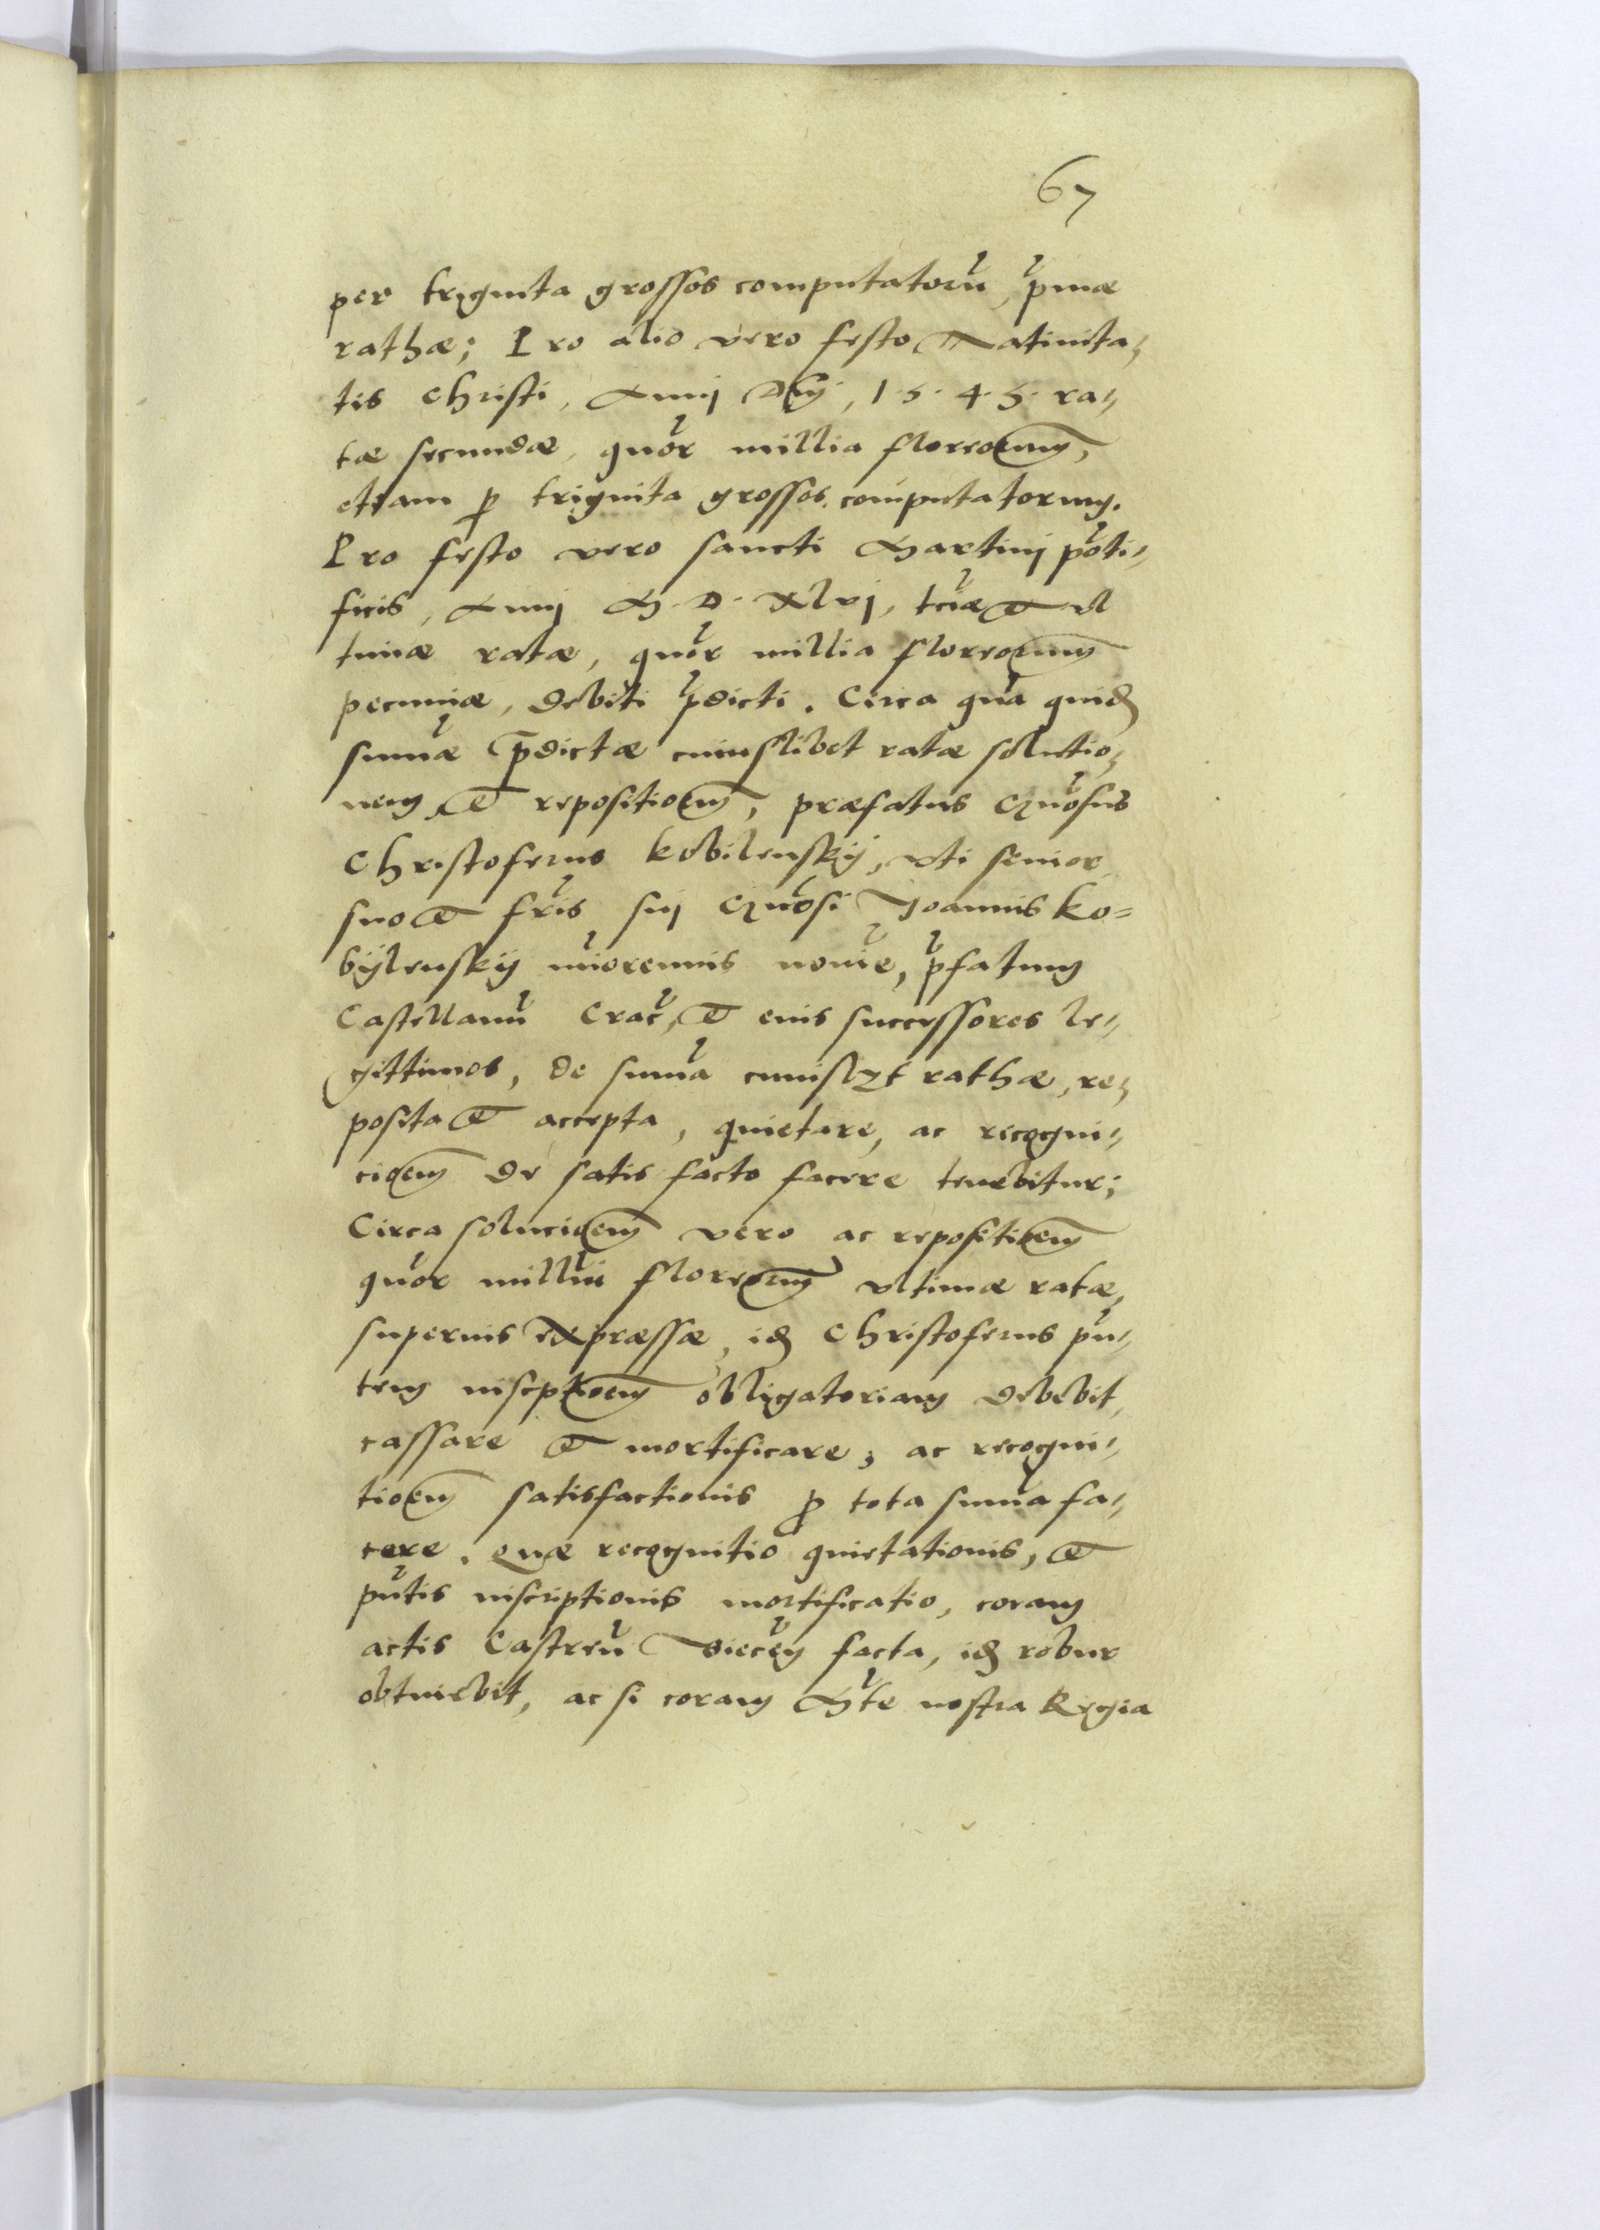 67
per triginta grossos computatorũ, p̃mæ
rathæ; Pro alio vero festo Natiuita⸗
tis Christi, Annj Dñj, 1·5·4·5· ra⸗
tæ secundæ, quõr millia florẽorum,
etiam ꝑ triginta grossos computatorum.
Pro festo vero sancti Martinj põti⸗
ficis, Annj M·D·Xlvj, tc̃iæ et vl
timæ ratæ, quõr millia florenorum
pecuniæ, debiti p̃dicti. Circa quã quidẽ
sum̃æ p̃dictæ cuiuslibet ratæ solutio⸗
nem, et repositiõem, præfatus Gñosus
Christoferus Kobilenskÿ, vti senior
suo et fr̃is suj Gñosi Joannis Ko=
bÿlenskÿ miñorennis noĩe, p̃fatum
Castellanũ Crac̃, et eius successores le⸗
gittimos, de sum̃a cuiuslꝫt rathæ, re⸗
posita et accepta, quietare, ac recogni⸗
ciõem de satis facto facere tenebitur;
Circa soluciõem vero ac repositiõem
quõr milliũ florenorum vltimæ ratæ,
superius expræssæ, idẽ Christoferus p̃n⸗
tem inscptiõem obligatoriam debebit,
cassare et mortificare, ac recogni⸗
tiõem satisfactionis ꝓ tota sum̃a fa⸗
cere. Quæ recognitio quietationis, et
p̃ntis inscriptionis mortificatio, coram
actis Castreñ Biecen̄ facta, idẽ robur
obtinebit, ac si coram M̃te nostra Regia